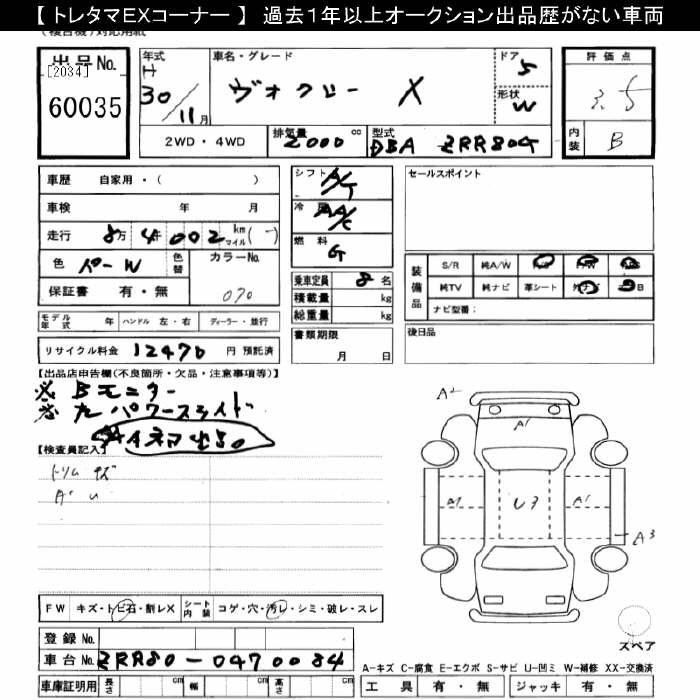 【 トレタマEXコーナー 】 過去1年以上オークション出品歴がない車両
出品No.
[2034]
60035
年式
H
30/11月
車名・グレード
ヴォクシー X
ドア
5
形状
W
評価点
3.5
内装
B
2WD・4WD
排気量 2000 cc
型式 DBA ZRR80G
車歴 自家用・( )
車検 年 月
走行 8万 4 002 km マイル (-)
色 パールW
色替
カラーNo.
070
保証書 有・無
シフト
A/T
冷房
A/C
燃料
G
乗車定員 8 名
積載量 kg
総重量 kg
書類期限
月 日
セールスポイント
装備品
S/R 純A/W P/S P/W
純TV 純ナビ 革シート
ナビ型番:
後日品
モデル年式 年 ハンドル 左・右 ディーラー・並行
リサイクル料金 12470 円 預託済
【出品店申告欄(不良箇所・欠品・注意事項等)】
※ Bモニター
※ 左パワースライド
【検査員記入】
トリム キズ
FW キズ・トビ石・割レX
シート内装 コゲ・穴・汚レ・シミ・破レ・スレ
A2
A1
A1
U3
A1
A3
スペア
登録No.
車台No. ZRR80-0470084
A-キズ C-腐食 E-エクボ S-サビ U-凹ミ W-補修 XX-交換済
車庫証明用 長さ cm 幅 cm 高さ cm
工具 有・無 ジャッキ 有・無